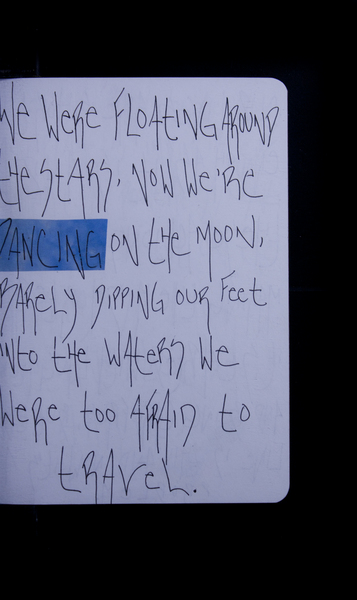 We WeRe FLOAtING AROUND
the StARS, NOW We'Re
DANCING ON the MOON,
BARELY DIPPING OUR Feet
INto the WAteRS We
WeRe too AFRAID to
tRAVeL.